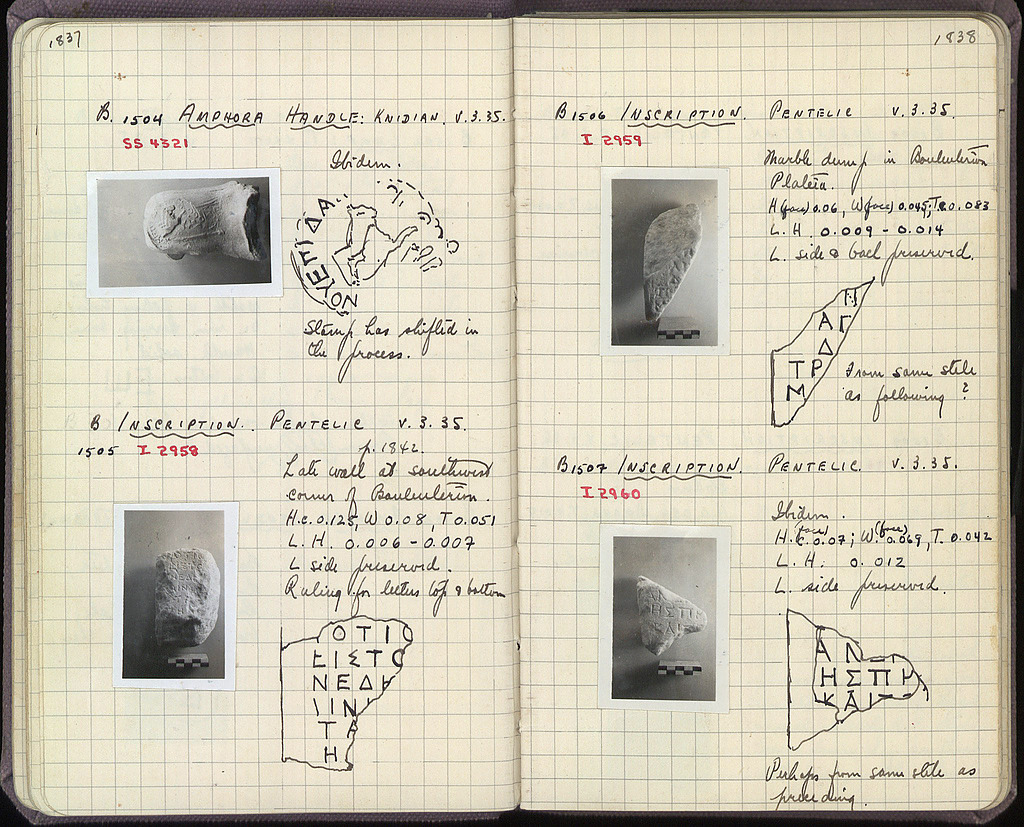 1837
B 1504 AMPHORA HANDLE: KNIDIAN. V.3.35.
SS 4321
Ibidem.
ΝΟΥΕΠΙΔΑ..
Stamp has shifted in
the process.
B INSCRIPTION. PENTELIC V.3.35.
1505 I 2958
p. 1842.
Late wall at southwest
corner of Bouleuterion.
H.c. 0.125, W 0.08, T 0.051
L.H. 0.006 - 0.007
L side preserved.
Ruling for letters top & bottom
ΟΤΙΟ
ΕΙΣΤΟ
ΝΕΔ
ΙΙΝ
ΤΑ
Η
1838
B1506 INSCRIPTION. PENTELIC V.3.35.
I 2959
Marble dump in Bouleuterion
Plateia.
H (face) 0.06, W (face) 0.045; T. 0.083
L.H. 0.009 - 0.014
L. side & back preserved.
Π
ΑΓ
Δ
ΤΡ
Μ
From same stele
as following?
B1507 INSCRIPTION. PENTELIC. V.3.35.
I 2960
Ibidem.
H. (face) c. 0.07; W. (face) 0.069, T. 0.042
L.H. 0.012
L. side preserved.
ΑΝ
ΗΣΠΗ
ΚΑΙ
Perhaps from same stele as
preceding.